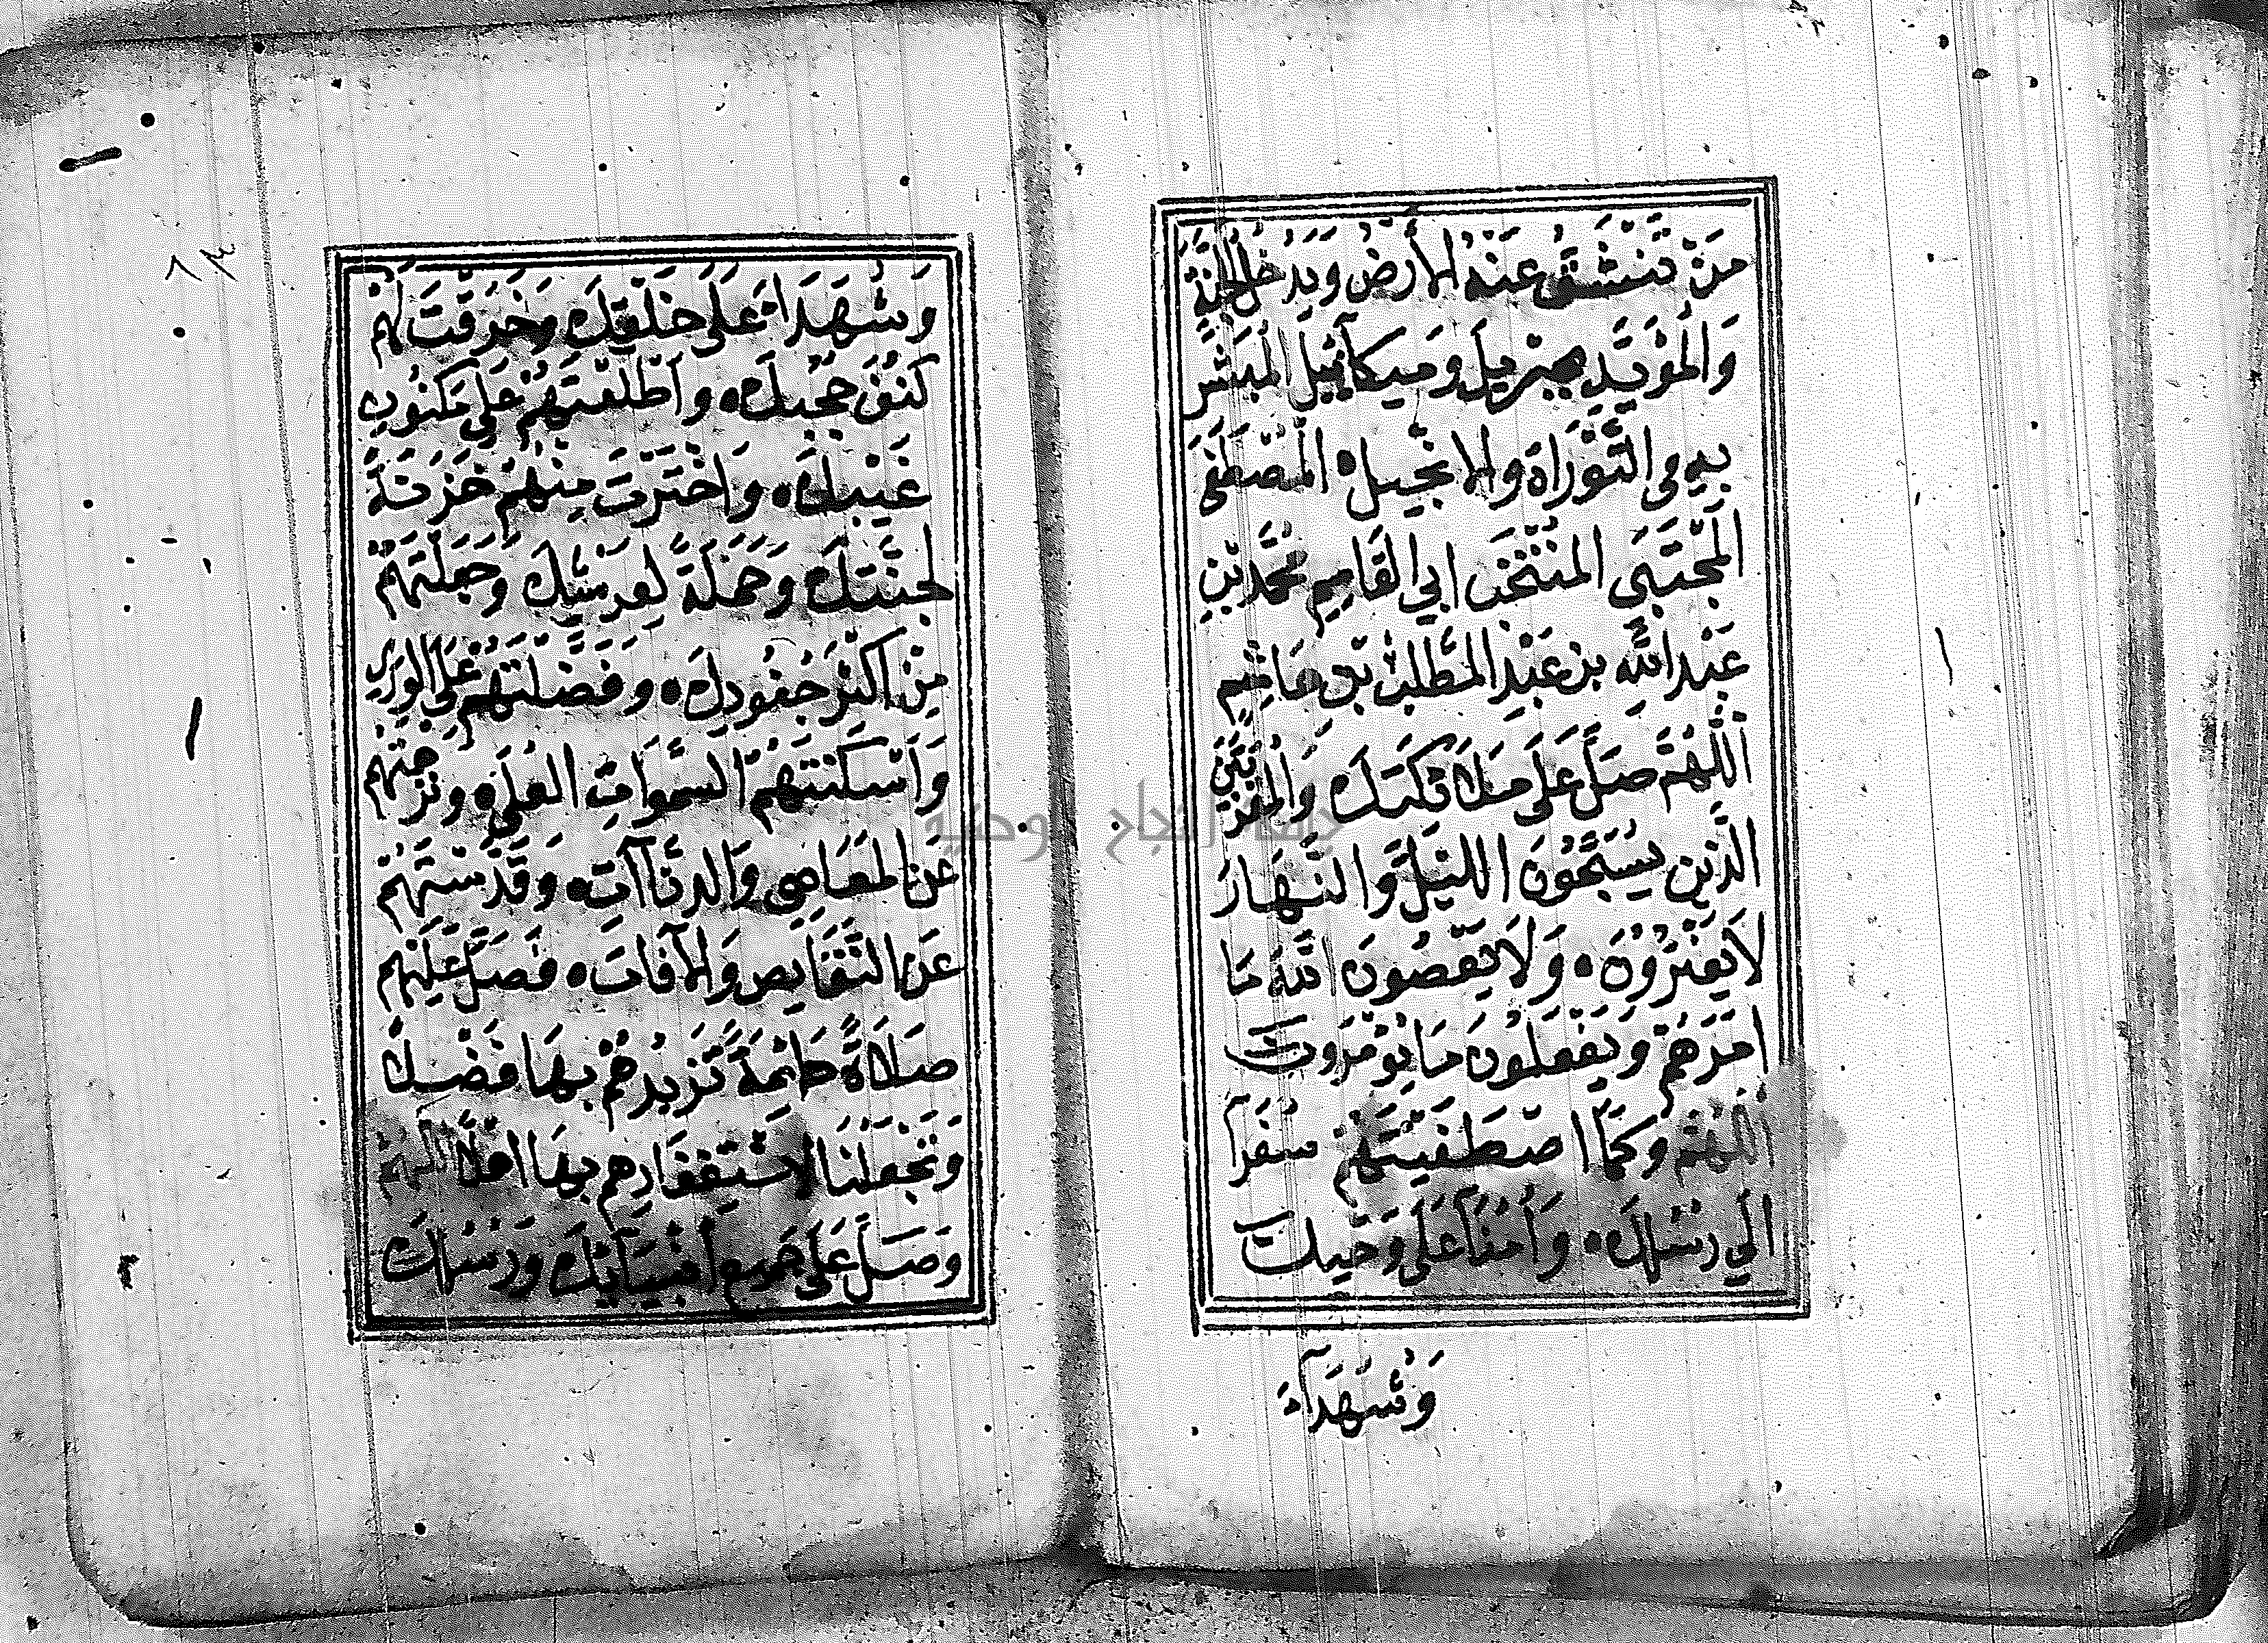 مَنْ تَنْشَقُّ عَنْهُ الْأَرْضُ وَيَدْخُلُ الْجَنَّةَ
وَالْمُؤَيَّدِ بِجِبْرِيلَ وَمِيكَآئِيلَ الْمُبَشَّرِ
بِهِ فِي التَّوْرَاةِ وَالْإِنْجِيلِ الْمُصْطَفَى
الْمُجْتَبَى الْمُنْتَخَبِ أَبِي الْقَاسِمِ مُحَمَّدِ بْنِ
عَبْدِ اللَّهِ بْنِ عَبْدِ الْمُطَّلِبِ بْنِ هَاشِمٍ
اللَّهُمَّ صَلِّ عَلَى مَلَائِكَتِكَ وَالْمُقَرَّبِينَ
الَّذِينَ يُسَبِّحُونَ اللَّيْلَ وَالنَّهَارَ
لَا يَفْتُرُونَ وَلَا يَعْصُونَ اللَّهَ مَا
أَمَرَهُمْ وَيَفْعَلُونَ مَا يُؤْمَرُونَ
اللَّهُمَّ وَكَمَا اصْطَفَيْتَهُمْ سُفَرَآءَ
إِلَى رُسُلِكَ وَأُمَنَآءَ عَلَى وَحْيِكَ
وَشُهَدَآءَ
٨٣
وَشُهَدَاءَ عَلَى خَلْقِكَ وَخَرَقْتَ لَهُمْ
كُنُفَ حُجُبِكَ وَأَطْلَعْتَهُمْ عَلَى مَكْنُونِ
غَيْبِكَ وَاخْتَرْتَ مِنْهُمْ خَزَنَةً
لِجَنَّتِكَ وَحَمَلَةً لِعَرْشِكَ وَجَعَلْتَهُمْ
مِنْ أَكْثَرِ جُنُودِكَ وَفَضَّلْتَهُمْ عَلَى الْوَرَى
وَأَسْكَنْتَهُمُ السَّمَوَاتِ الْعُلَى وَنَزَّهْتَهُمْ
عَنِ الْمَعَاصِي وَالدَّنَاآتِ وَقَدَّسْتَهُمْ
عَنِ النَّقَايِصِ وَالْآفَاتِ فَصَلِّ عَلَيْهِمْ
صَلَاةً دَائِمَةً تَزِيدُهُمْ بِهَا فَضْلًا
وَتَجْعَلُنَا لِاسْتِغْفَارِهِمْ بِهَا أَهْلًا اللَّهُمَّ
وَصَلِّ عَلَى جَمِيعِ أَنْبِيَآئِكَ وَرُسُلِكَ